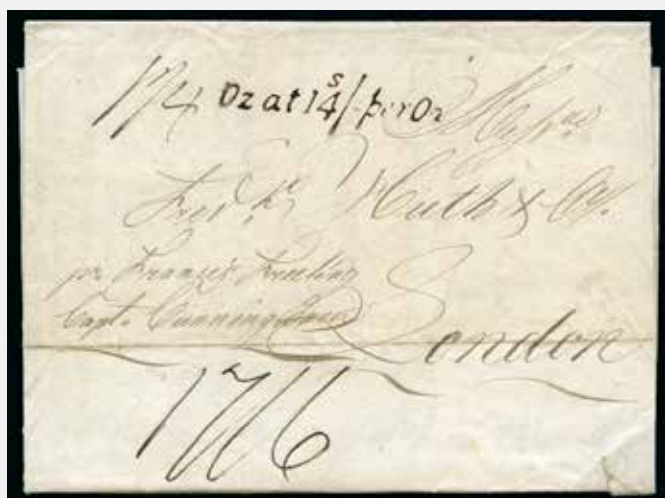 1 1/4 Oz at 14/ s per Oz Messrs
Fredk Huth & Co.
pr Francis Freeling
Capt. Cunningham
London
17/6